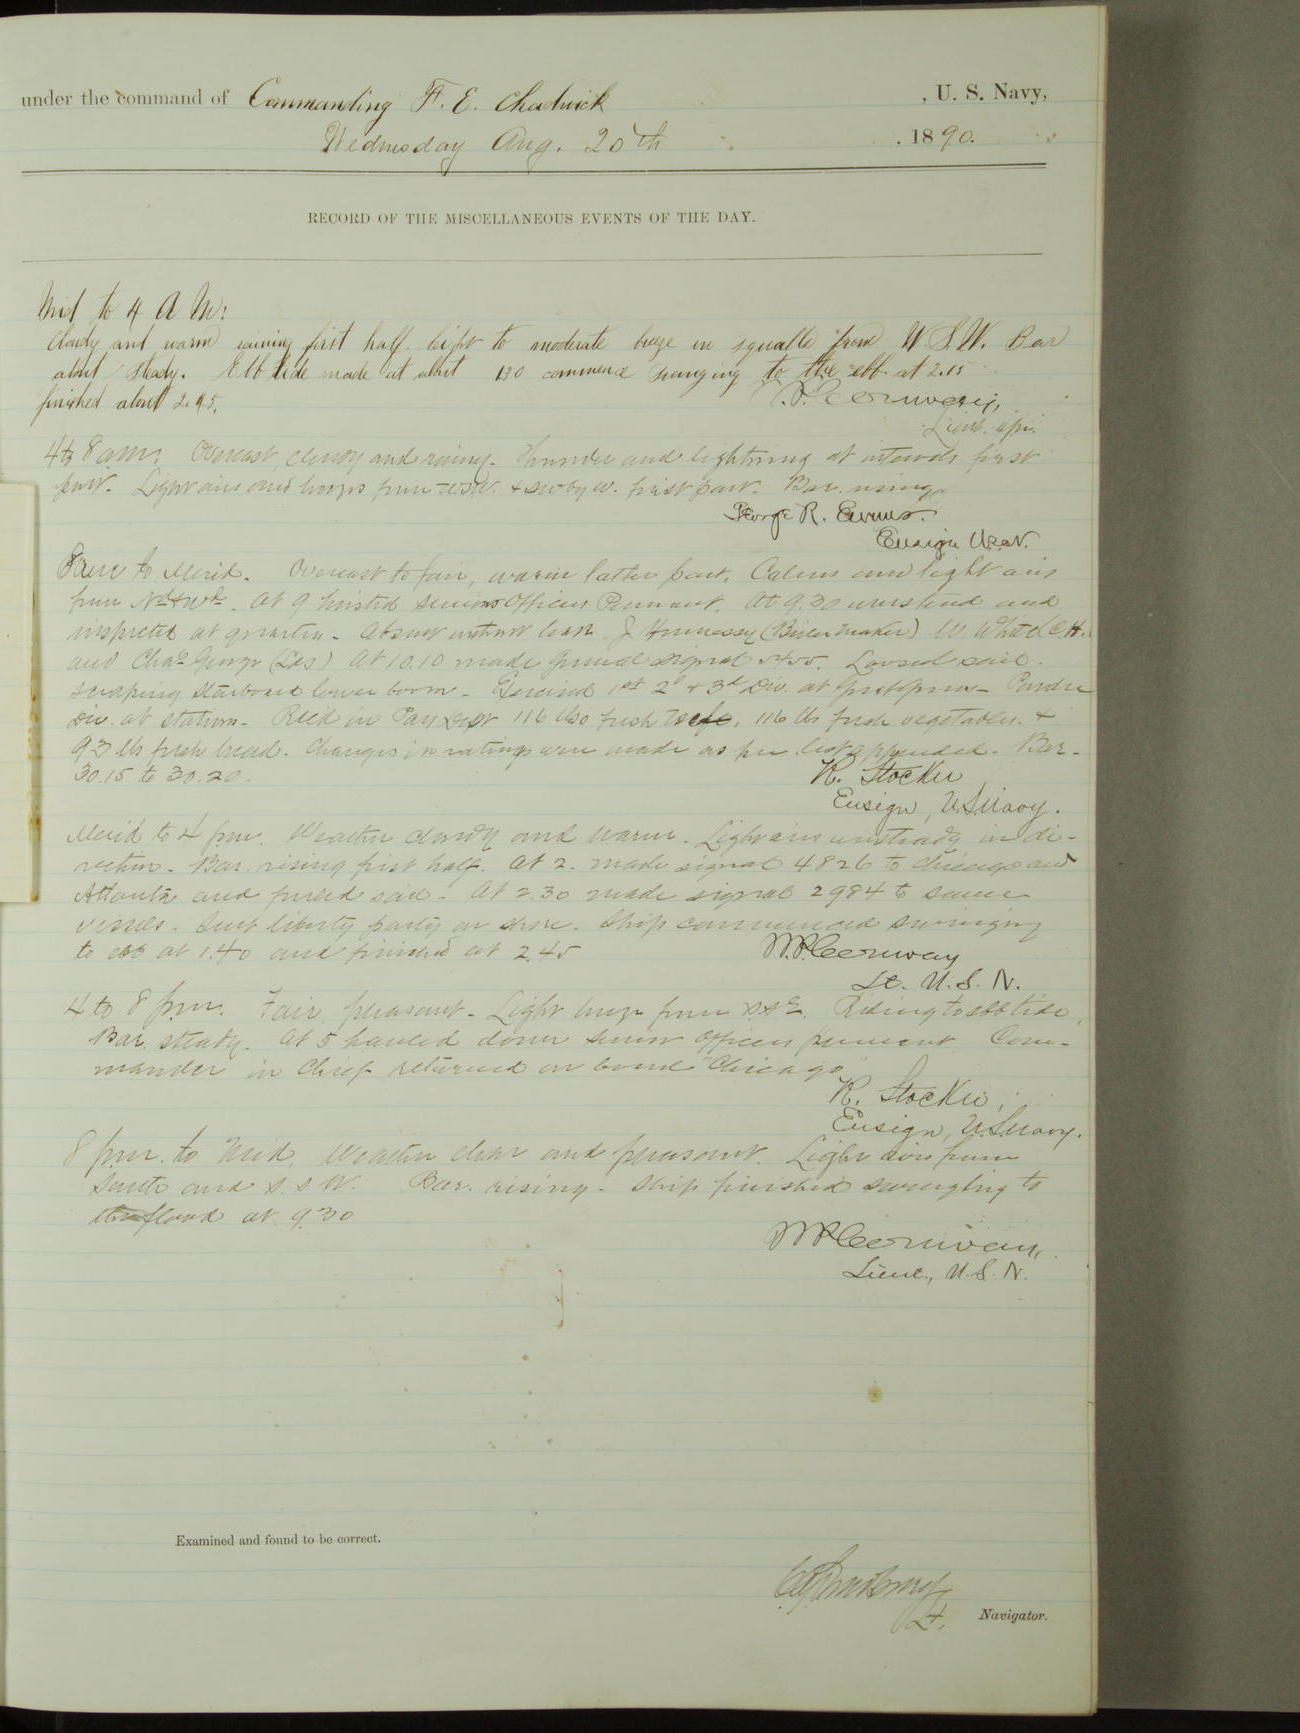 under the command of Commanding F. E. Chadwick , U. S. Navy,
Wednesday Aug. 20th , 1890.
RECORD OF THE MISCELLANEOUS EVENTS OF THE DAY.
Mid to 4 A M:
Cloudy and warm raining first half. Light to moderate breeze in squalls from W S.W. Bar
about steady. Ebb tide made at about 1.30 commence swinging to the ebb at 2.15
finished about 2.45.
W.P. Conway,
Lieut.
4 to 8 am: Overcast, cloudy and rainy. Thunder and lightning at intervals first
part. Light airs and from WSW. & SW by W. first part. Bar. rising
George R. Evans.
Ensign U.S.N.
8 am to Merid. Overcast to fair, warm latter part. Calms and light airs
from Nd & Wd. At 9 hoisted Senior Officers Pennant. At 9.30 mustered and
inspected at quarters. Absent without leave J Hennessey (Boiler maker) W. White
and Chas. George (Lds) At 10.10 made general signal Loosed sail.
scraping starboard lower boom. Exercised 1st 2d & 3d Div. at great guns. Powder
Div. at stations. Rec'd in Pay Dept 116 lbs fresh beef, 116 lbs fresh vegetables &
93 lbs fresh bread. Changes in ratings were made as per list appended. Bar.
30.15 to 30.20.
K. Stocker
Ensign, U.S. Navy.
Merid to 4 pm. Weather cloudy and warm. Light airs unsteady in di-
rection. Bar. rising first half. At 2. made signal 4826 to Chicago and
Atlanta and furled sail. At 2.30 made signal 2984 to same
vessels. Sent liberty party on shore. Ship commenced swinging
to ebb at 1.40 and finished at 2.45
W.P. Conway
Lt. U. S. N.
4 to 8 pm. Fair, pleasant. Light breeze from Riding to ebb tide.
Bar. steady. At 5 hauled down senior officers pennant Com-
mander in Chief returned on board "Chicago"
K. Stocker,
Ensign, U.S. Navy.
8 pm. to Mid. Weather clear and pleasant. Light airs from
South and S. S. W. Bar. rising. Ship finished swinging to
the flood at 9.30
W P Conway,
Lieut., U. S. N.
Examined and found to be correct.
Lt. Navigator.